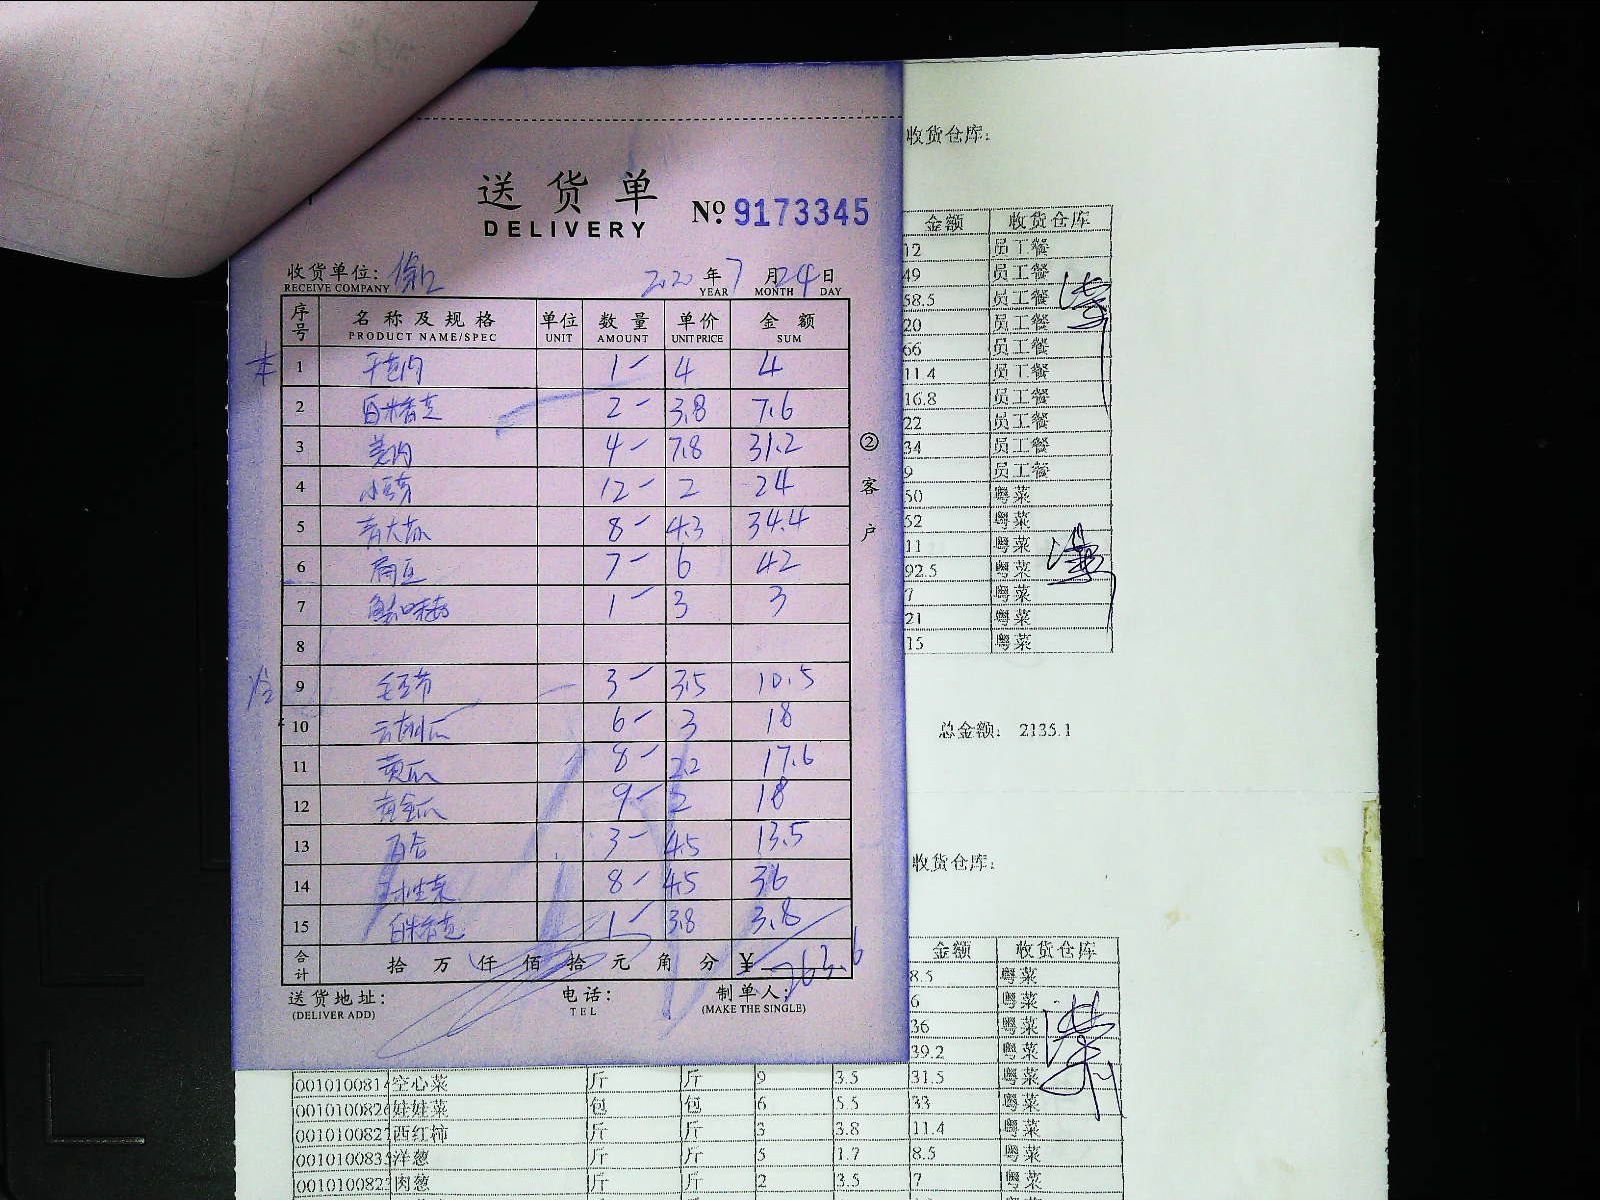 送货单
DELIVERY
№ 9173345
收货单位: 徐记 2020年7月24日
RECEIVE COMPANY YEAR MONTH DAY
序号 名称及规格 单位 数量 单价 金额
PRODUCT NAME/SPEC UNIT AMOUNT UNIT PRICE SUM
1 1- 4 4
2 西米香芝 2- 3.8 7.6
3 姜肉 4- 7.8 31.2
4 小豆芽 12- 2 24
5 青大椒 8- 4.3 34.4
6 扁豆 7- 6 42
7 1- 3 3
8
冷 9 毛豆节 3- 3.5 10.5
10 6- 3 18
11 黄瓜 8- 2.2 17.6
12 黄金瓜 9- 2 18
13 百合 3- 4.5 13.5
14 8- 4.5 36
15 1- 3.8 3.8
合计 拾万仟佰拾元角分 ¥ 263.6
送货地址: 电话: 制单人:
(DELIVER ADD) TEL (MAKE THE SINGLE)
②客户
收货仓库:
金额 收货仓库
12 员工餐
49 员工餐
58.5 员工餐
20 员工餐
66 员工餐
11.4 员工餐
16.8 员工餐
22 员工餐
34 员工餐
9 员工餐
50 粤菜
52 粤菜
11 粤菜
92.5 粤菜
7 粤菜
21 粤菜
15 粤菜
总金额: 2135.1
收货仓库:
金额 收货仓库
8.5 粤菜
6 粤菜
36 粤菜
39.2 粤菜
001010081 空心菜 斤 斤 9 3.5 31.5 粤菜
001010082 娃娃菜 包 包 6 5.5 33 粤菜
001010082 西红柿 斤 斤 3 3.8 11.4 粤菜
001010083 洋葱 斤 斤 5 1.7 8.5 粤菜
001010082 肉葱 斤 斤 2 3.5 7 粤菜